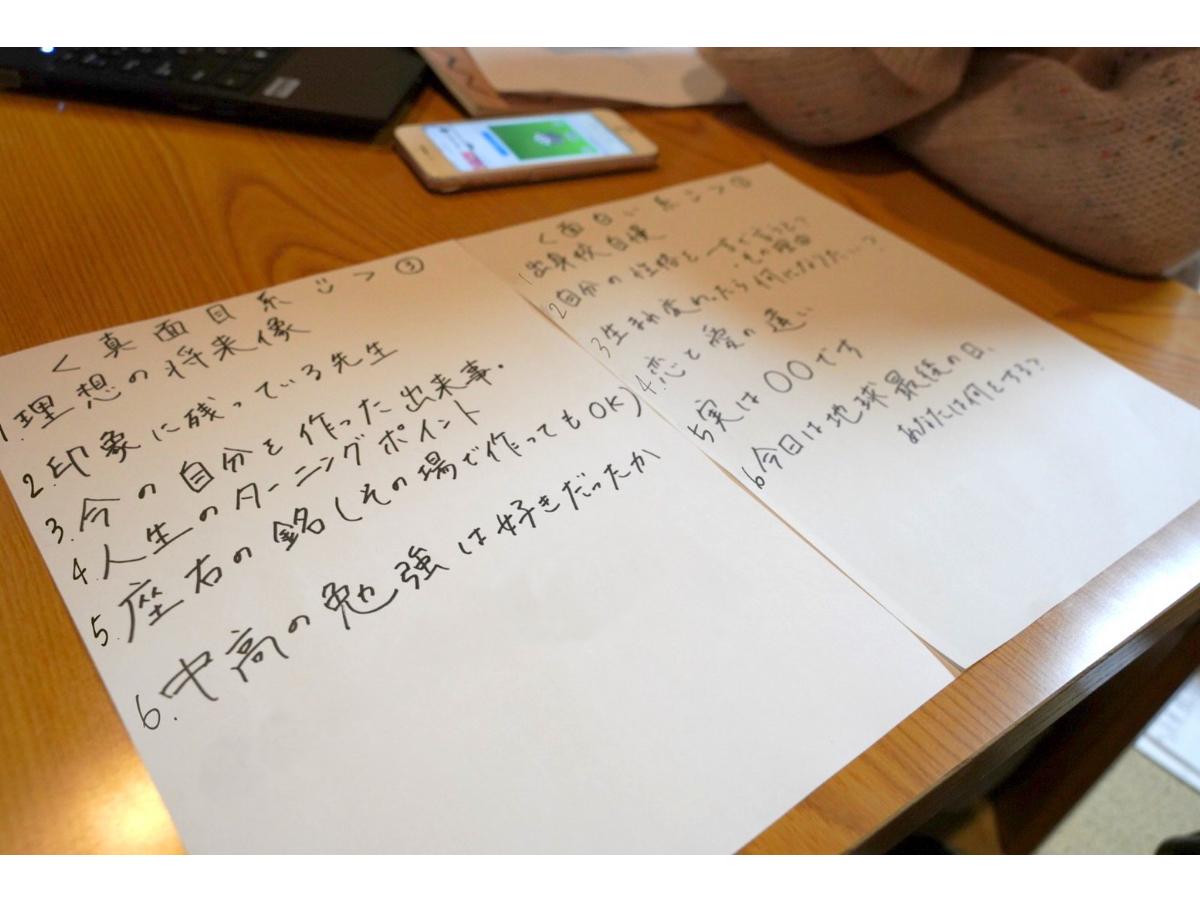 ＜真面目系＞③
1.理想の将来像
2.印象に残っている先生
3.今の自分を作った出来事.
4.人生のターニングポイント
5.座右の銘(その場で作ってもOK)
6.中高の勉強は好きだったか
＜面白い系＞
1出身校自慢
2自分の性格を一言で言うと?
・その理由
3生まれ変わったら何になりたい?
4.恋と愛の違い
5実は〇〇です
6今日は地球最後の日、
あなたは何をする?